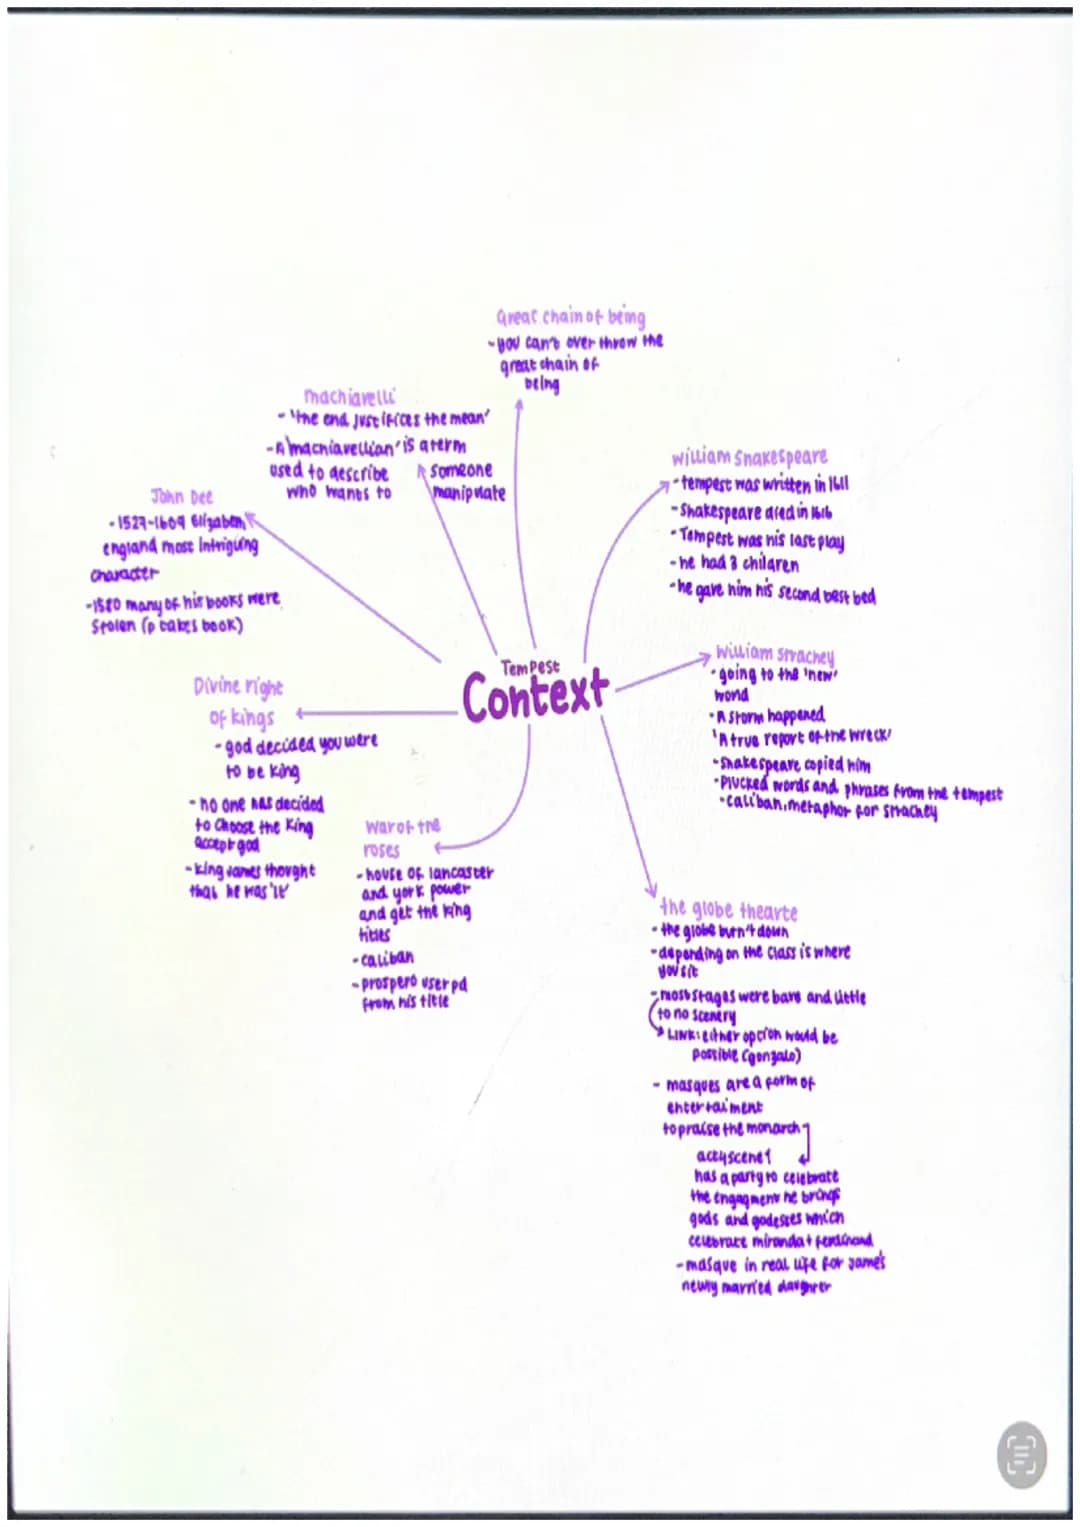 Tempest
Context
Great chain of being
- you can't over throw the
great chain of
being
machiavelli
- 'the end justifices the mean'
- A 'machiavellian' is a term
used to describe someone
who wants to manipulate
John Dee
- 1527-1609 Elizabeth,
england most intriguing
character
- 1580 many of his books were
stolen (p takes book)
Divine right
of kings
- god decided you were
to be king
- no one has decided
to choose the king
accept god
- king James thought
that he was 'it'
War of the
roses
- house of lancaster
and york power
and get the king
titles
- caliban
- prospero userpd
from his title
william Shakespeare
- tempest was written in 1611
- Shakespeare died in 1616
- Tempest was his last play
- he had 3 children
- he gave him his second best bed
william strachey
- going to the 'new'
world
- A storm happened
'A true report of the wreck'
- Shakespeare copied him
- Plucked words and phrases from the tempest
- caliban, metaphor for strachey
the globe thearte
- the globe burn't down
- depending on the class is where
you sit
- most stages were bare and little
to no scenery
LINK: either option would be
possible (gonzalo)
- masques are a form of
entertaiment
to praise the monarch
act 4 scene 1
has a party to celebrate
the engagment he brings
gods and godesses which
celebrate miranda + ferdinand
- masque in real life for James
newly married daughter